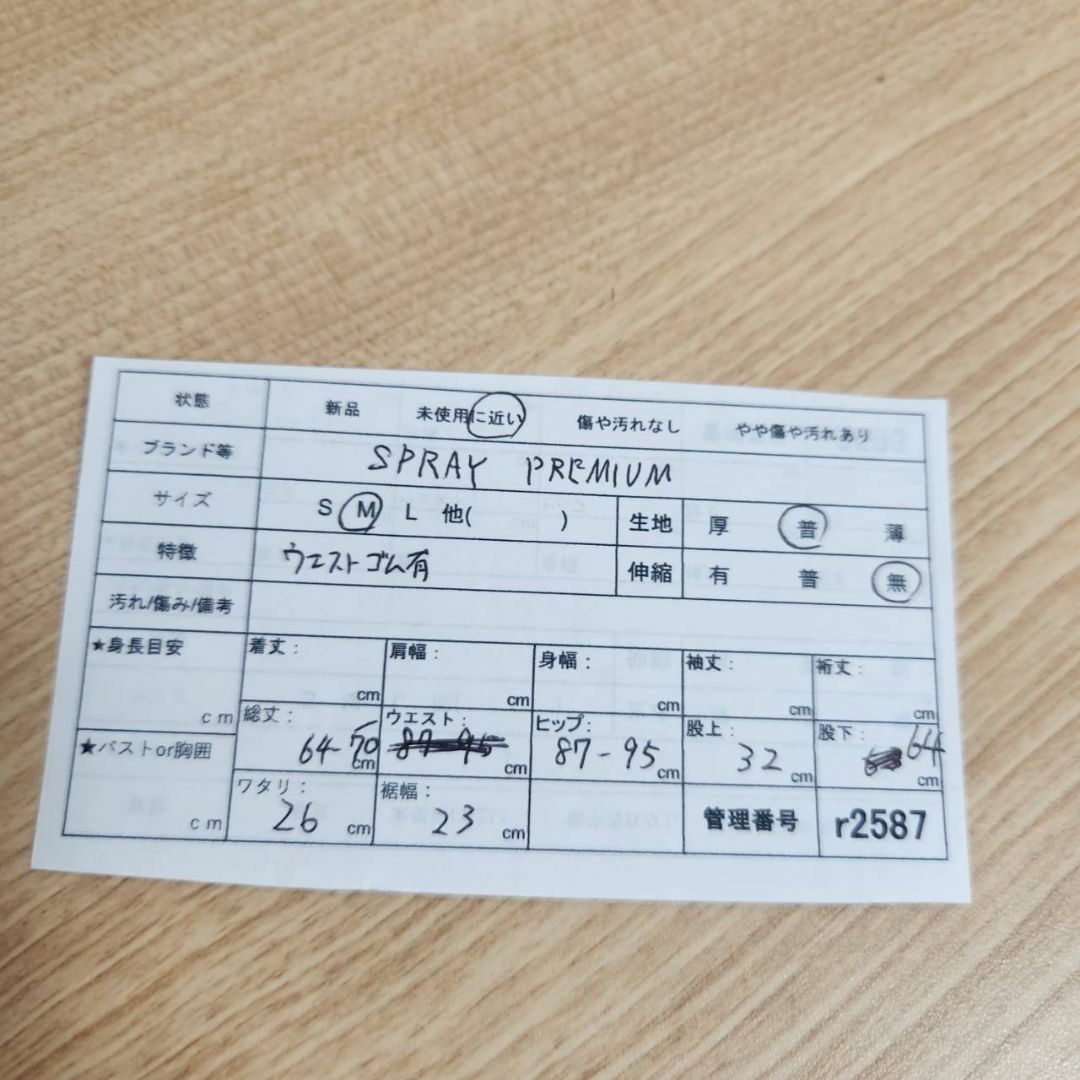 状態 新品 未使用に近い 傷や汚れなし やや傷や汚れあり
ブランド等 SPRAY PREMIUM
サイズ S M L 他( ) 生地 厚 普 薄
特徴 ウエストゴム有 伸縮 有 普 無
汚れ/傷み/備考
★身長目安 cm 着丈: cm 肩幅: cm 身幅: cm 袖丈: cm 裄丈: cm
★バストor胸囲 cm 総丈: 64-70 cm ウエスト: 87-95 cm ヒップ: 87-95 cm 股上: 32 cm 股下: 64 cm
ワタリ: 26 cm 裾幅: 23 cm 管理番号 r2587